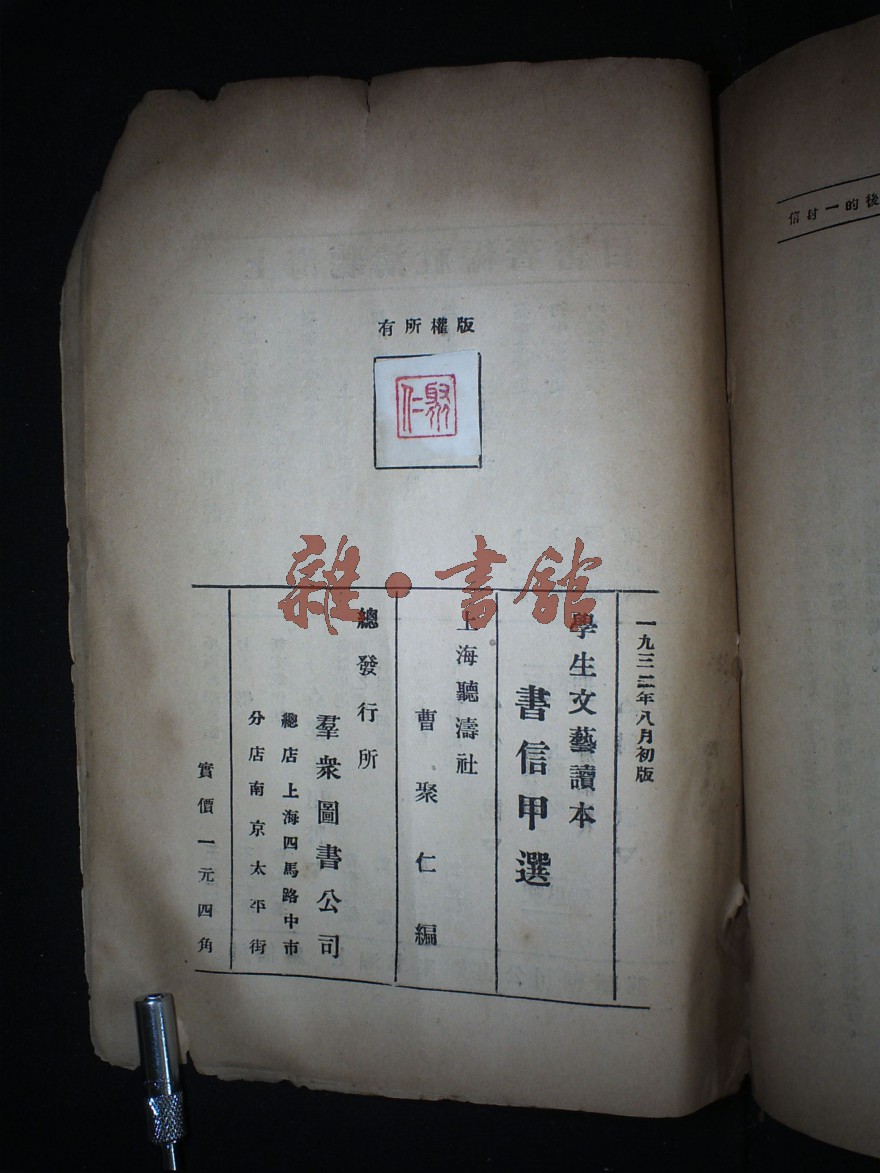 版權所有
聚仁
雜·書館
一九三二年八月初版
學生文藝讀本
書信甲選
上海聽濤社
曹聚仁編
總發行所
羣衆圖書公司
總店上海四馬路中市
分店南京太平街
實價一元四角
後的一封信